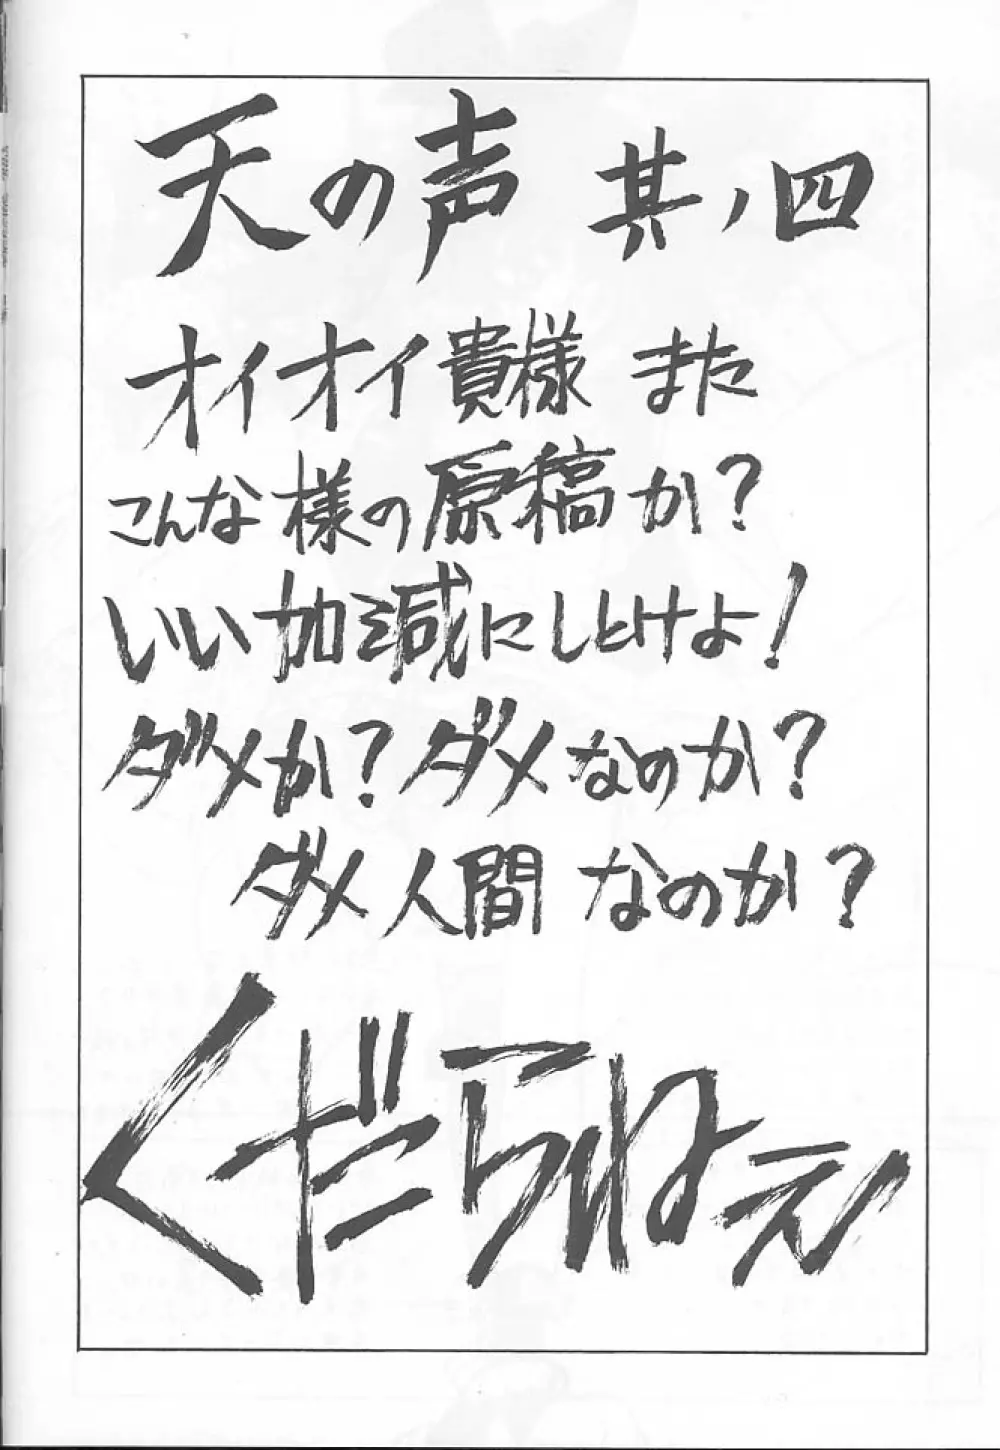 天の声 其ノ四
オイオイ貴様 また
こんな様の原稿か?
いい加減にしとけよ!
ダメか?ダメなのか?
ダメ人間 なのか?
くだらねぇ